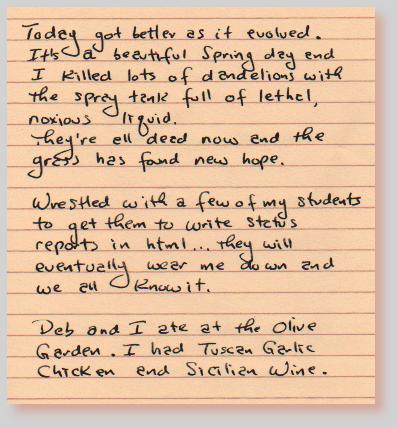 Today got better as it evolved.
It's a beautiful Spring day and
I killed lots of dandelions with
the spray tank full of lethal,
noxious liquid.
They're all dead now and the
grass has found new hope.
Wrestled with a few of my students
to get them to write status
reports in html... they will
eventually wear me down and
we all know it.
Deb and I ate at the Olive
Garden. I had Tuscan Garlic
Chicken and Sicilian Wine.